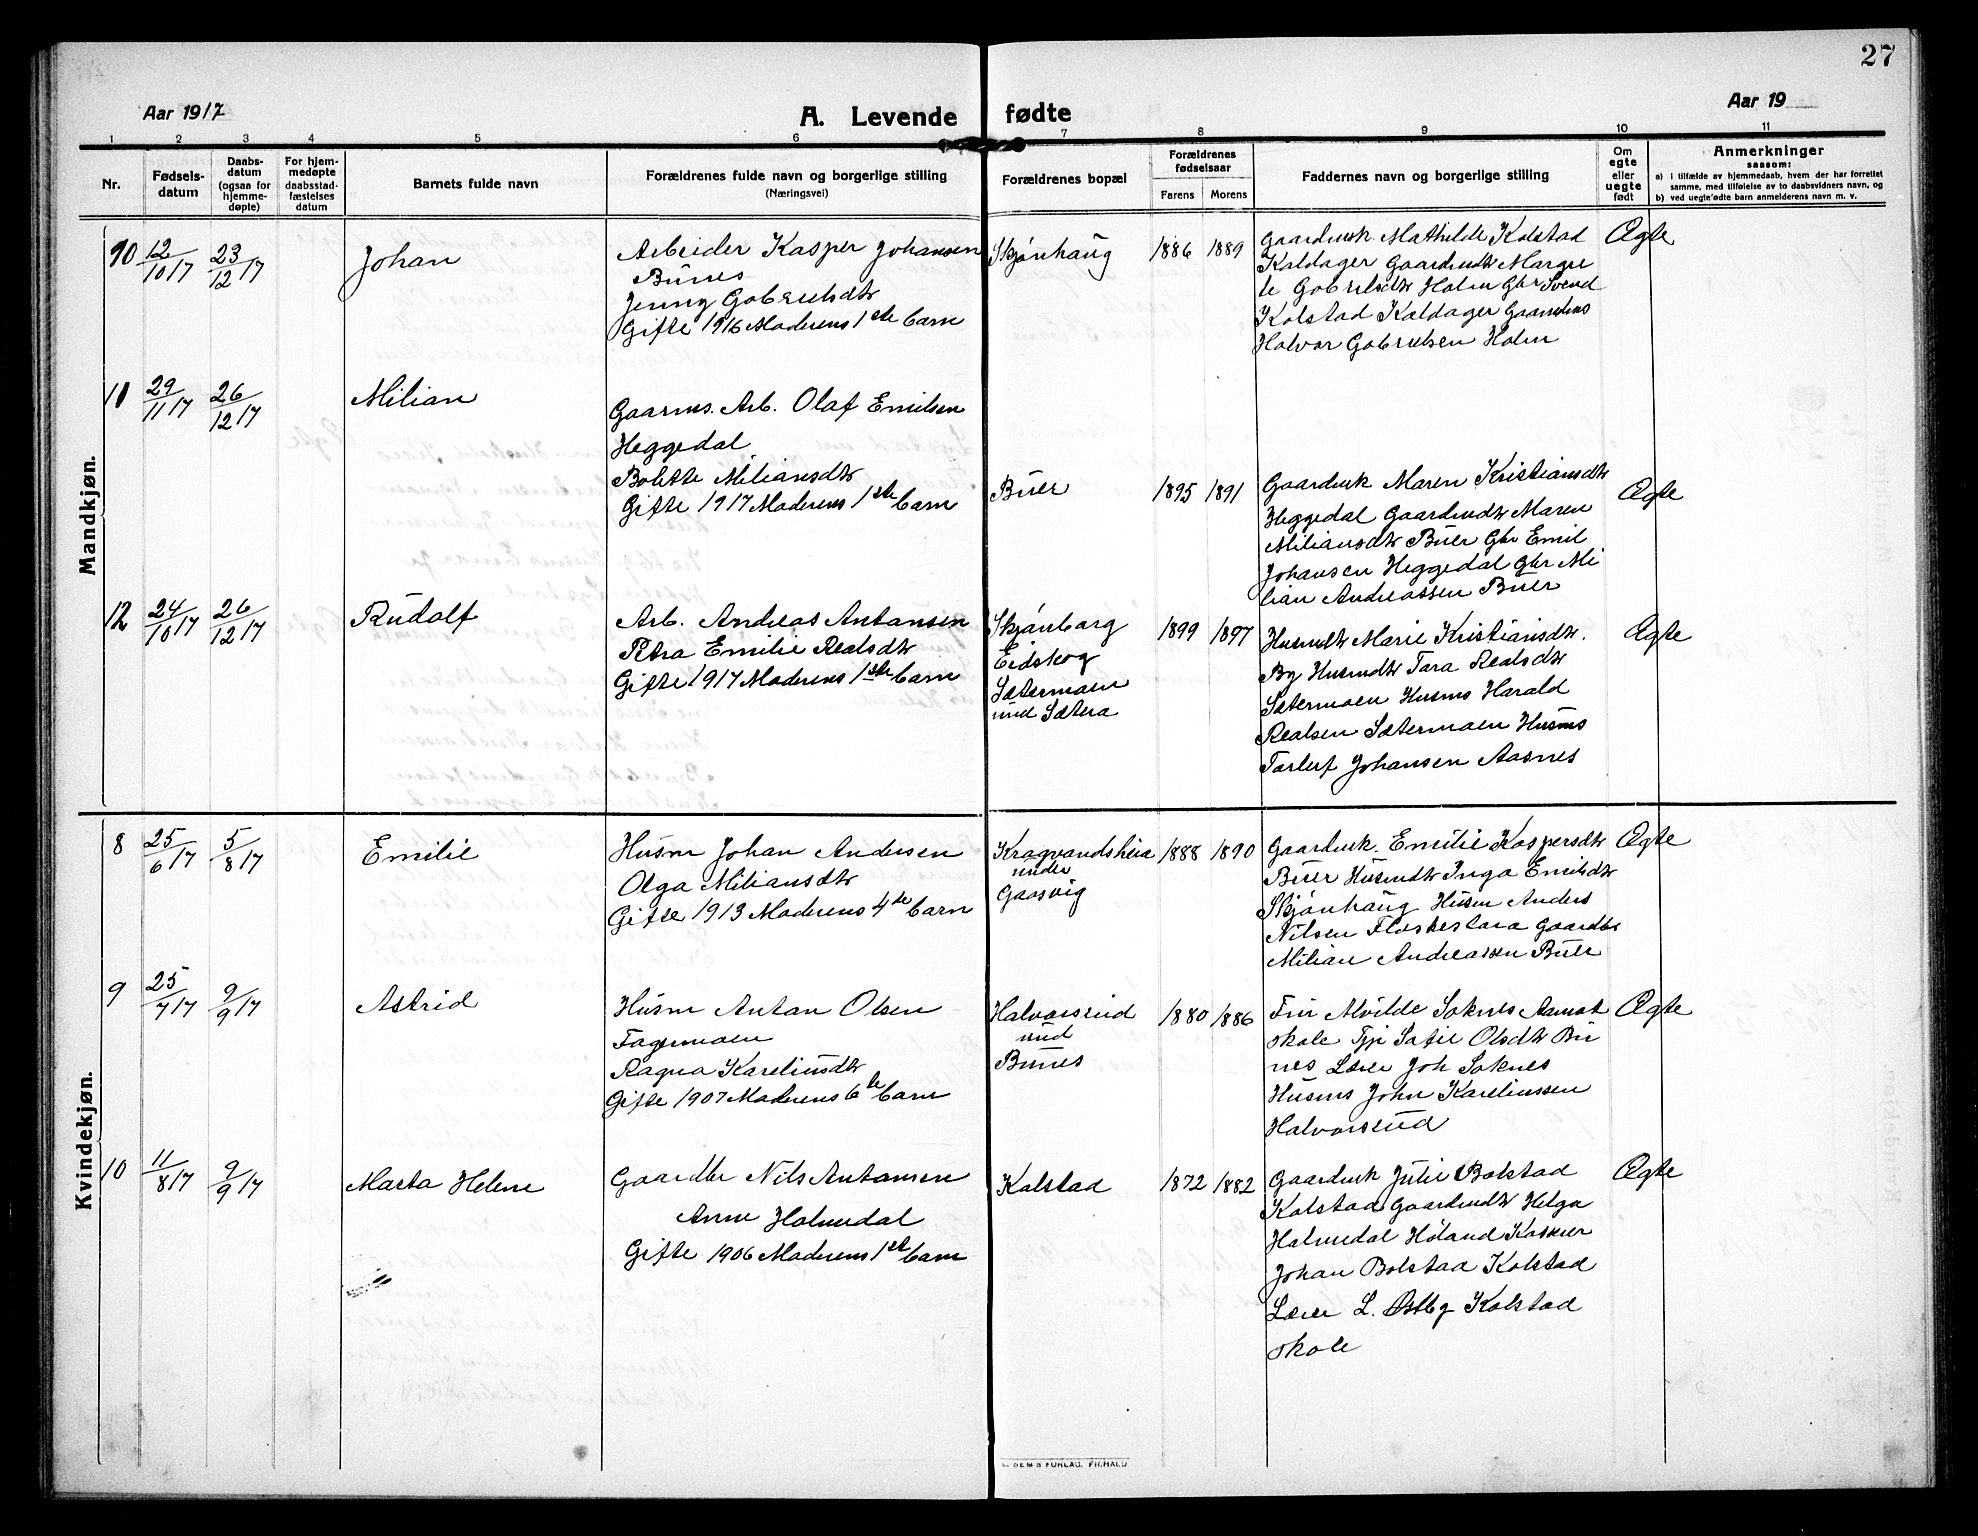 27
Aar 1917
A. Levende fødte
Aar 19
1 2 3 4 5 6 7 8 9 10 11
Nr.
Fødsels-
datum
Daabs-
datum
(ogsaa for
hjemme-
døpte)
For hjem-
medøpte
daabsstad-
fæstelses
datum
Barnets fulde navn
Forældrenes fulde navn og borgerlige stilling
(Næringsvei)
Forældrenes bopæl
Forældrenes
fødselsaar
Farens Morens
Faddernes navn og borgerlige stilling
Om
egte
eller
uegte
født
Anmerkninger
saasom:
a) i tilfælde av hjemmedaab, hvem der har forrettet
samme, med tilføielse av to daabsvidners navn, og
b) ved uegte fødte barn anmelderens navn m. v.
Mandkjøn.
10 12/10 17 23/12 17 Johan
Arbeider Kasper Johansen
Bunes
Jenny Gabrielsdtr
Gifte 1916 Moderens 1ste barn
Skjønhaug 1886 1889
Gaardmk Mathilde Kolstad
Kaldager Gaardmdtr Margre
te Gabrielsdtr Holm Gbr Svend
Kolstad Kaldager Gaardms
Halvor Gabrielsen Holm
Ægte
11 29/11 17 26/12 17 Milian
Gaarms. Arb. Olaf Emilsen
Heggedal
Bolette Miliansdtr
Gifte 1917 Moderens 1ste barn
Buer 1895 1891
Gaardmk Maren Kristiansdtr
Heggedal Gaardmdtr Maren
Miliansdtr Buer Gbr Emil
Johansen Heggedal Gbr Mi
lian Andreassen Buer
Ægte
12 24/10 17 26/12 17 Rudolf
Arb. Andreas Antonsen
Petra Emilie Realsdtr
Gifte 1917 Moderens 1ste barn
Skjønborg
Eidskog
Sætermoen
und Sætera
1899 1897
Husmdtr Marie Kristiansdtr.
By Husmdtr Tora Realsdtr
Sætermoen Husms Harald
Realsen Sætermoen Husms
Torleif Johansen Aasnes
Ægte
Kvindekjøn.
8 25/6 17 5/8 17 Emilie
Husm Johan Andersen
Olga Miliansdtr
Gifte 1913 Moderens 4de barn
Kragvandsheia
under
Gaasvig
1888 1890
Gaardmk. Emilie Kaspersdtr
Buer Husmdtr Inga Emilsdtr
Skjønhaug Husm Anders
Nilsen Flaskestara Gaardbr
Milian Andreassen Buer
Ægte
9 25/7 17 9/9 17 Astrid
Husm Anton Olsen
Fagermoen
Ragna Kareliusdtr
Gifte 1907 Moderens 6te barn
Halvorsrud
und
Bunes
1880 1886
Fru Alvilde Soknes Aamot
skole Tjp Sofie Olsdtr Bu
nes Lærer Joh Soknes
Husms John Kareliussen
Halvorsrud
Ægte
10 11/8 17 9/9 17 Marta Helene
Gaardbr Nils Antonsen
Anne Halvedal
Gifte 1906 Moderens 1ste barn
Kolstad 1872 1882
Gaardmk Julie Bolstad
Kolstad Gaardmdtr Helga
Høland Kasserer
Johan Bolstad Kolstad
Lærer L. Østby Kolstad
skole
Ægte
SEM'S FORLAG. FR.HALD